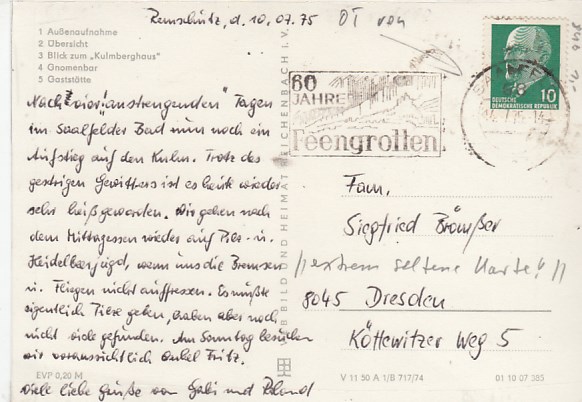 Remschütz, d. 10.07.75
OT von
1 Außenaufnahme
2 Übersicht
3 Blick zum „Kulmberghaus"
4 Gnomenbar
5 Gaststätte
Nach vier „anstrengenden" Tagen
im Saalfelder Bad nun noch ein
Aufstieg auf den Kulm. Trotz des
gestrigen Gewitters ist es heute wieder
sehr heiß geworden. Wir gehen nach
dem Mittagessen wieder auf Pilz- u.
Heidelbeerjagd, wenn uns die Bremsen
u. Fliegen nicht auffressen. Es müßte
eigentlich Pilze geben, haben aber noch
nicht viele gefunden. Am Sonntag besuchen
wir voraussichtlich Onkel Fritz.
Viele liebe Grüße von Gabi und Roland
EVP 0,20 M
BILD UND HEIMAT REICHENBACH I. V.
60
JAHRE
Feengrotten
10
DEUTSCHE
DEMOKRATISCHE REPUBLIK
Fam.
Siegfried Brömßer
"extrem seltene Karte!"
8045 Dresden
Köttewitzer Weg 5
V 11 50 A 1/B 717/74
01 10 07 385